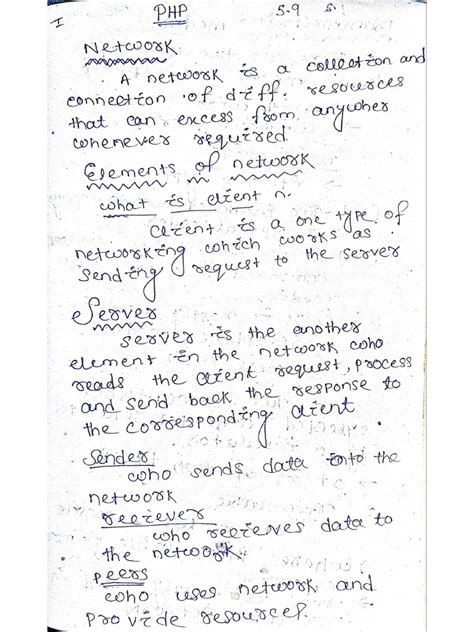 I PHP 5.9
Network
A network is a collection and
connection of diff. resources
that can excess from anywher
whenever required
Elements of network
what is client n.
Client is a one type of
networking which works as
sending request to the server
Server
server is the another
element in the network who
reads the client request, process
and send back the response to
the corresponding client
Sender:
who sends data into the
network
reciever
who recieves data to
the network
peers
who uses network and
provide resources.